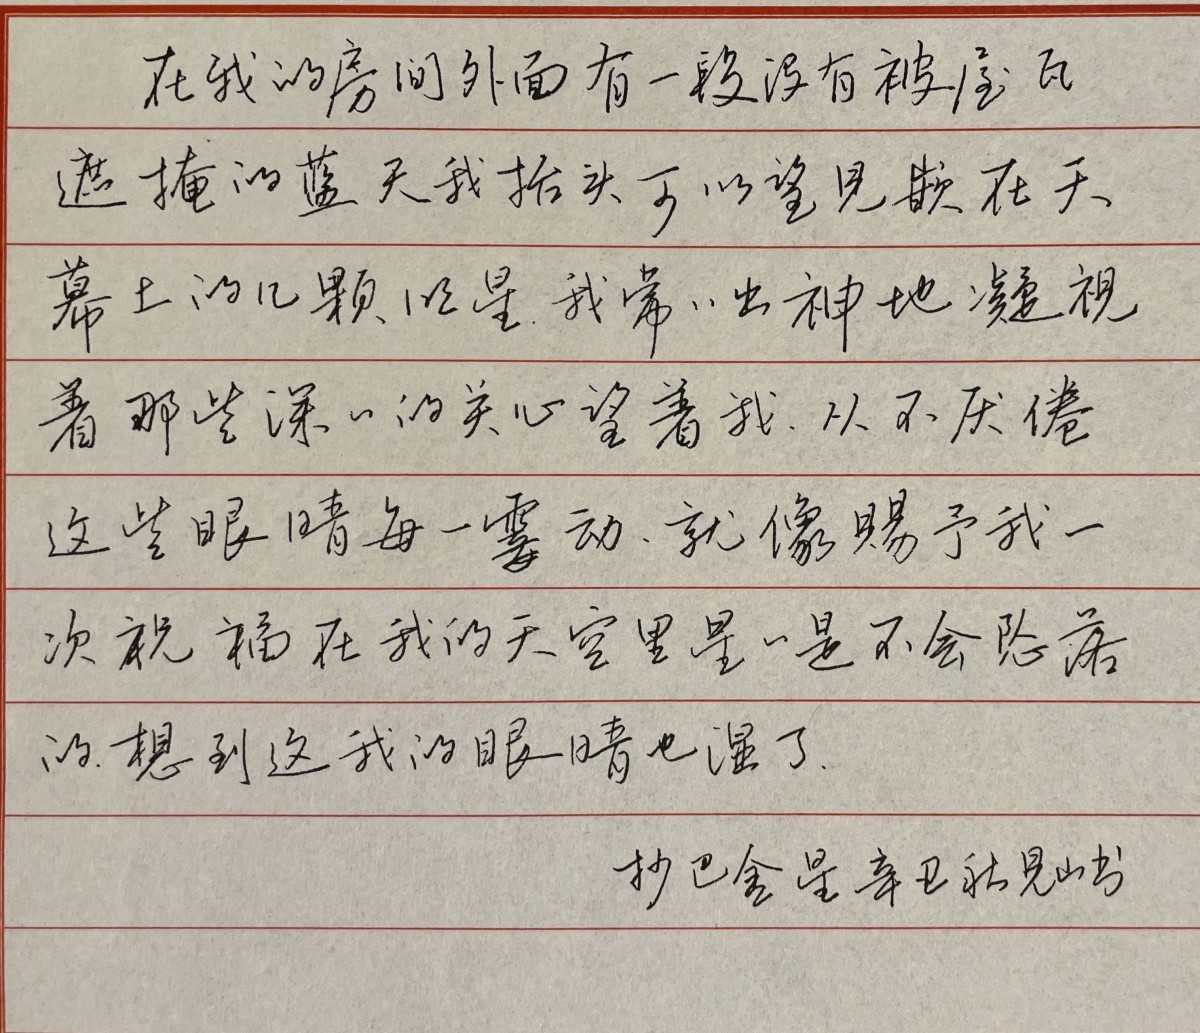 在我的房间外面有一段没有被屋瓦
遮掩的蓝天我抬头可以望见嵌在天
幕上的几颗明星.我常〻出神地凝视
着那些深〻的关心望着我.从不厌倦
这些眼睛每一霎动、就像赐予我一
次祝福在我的天空里星〻是不会坠落
的.想到这我的眼睛也湿了.
抄巴金星辛丑秋见山书